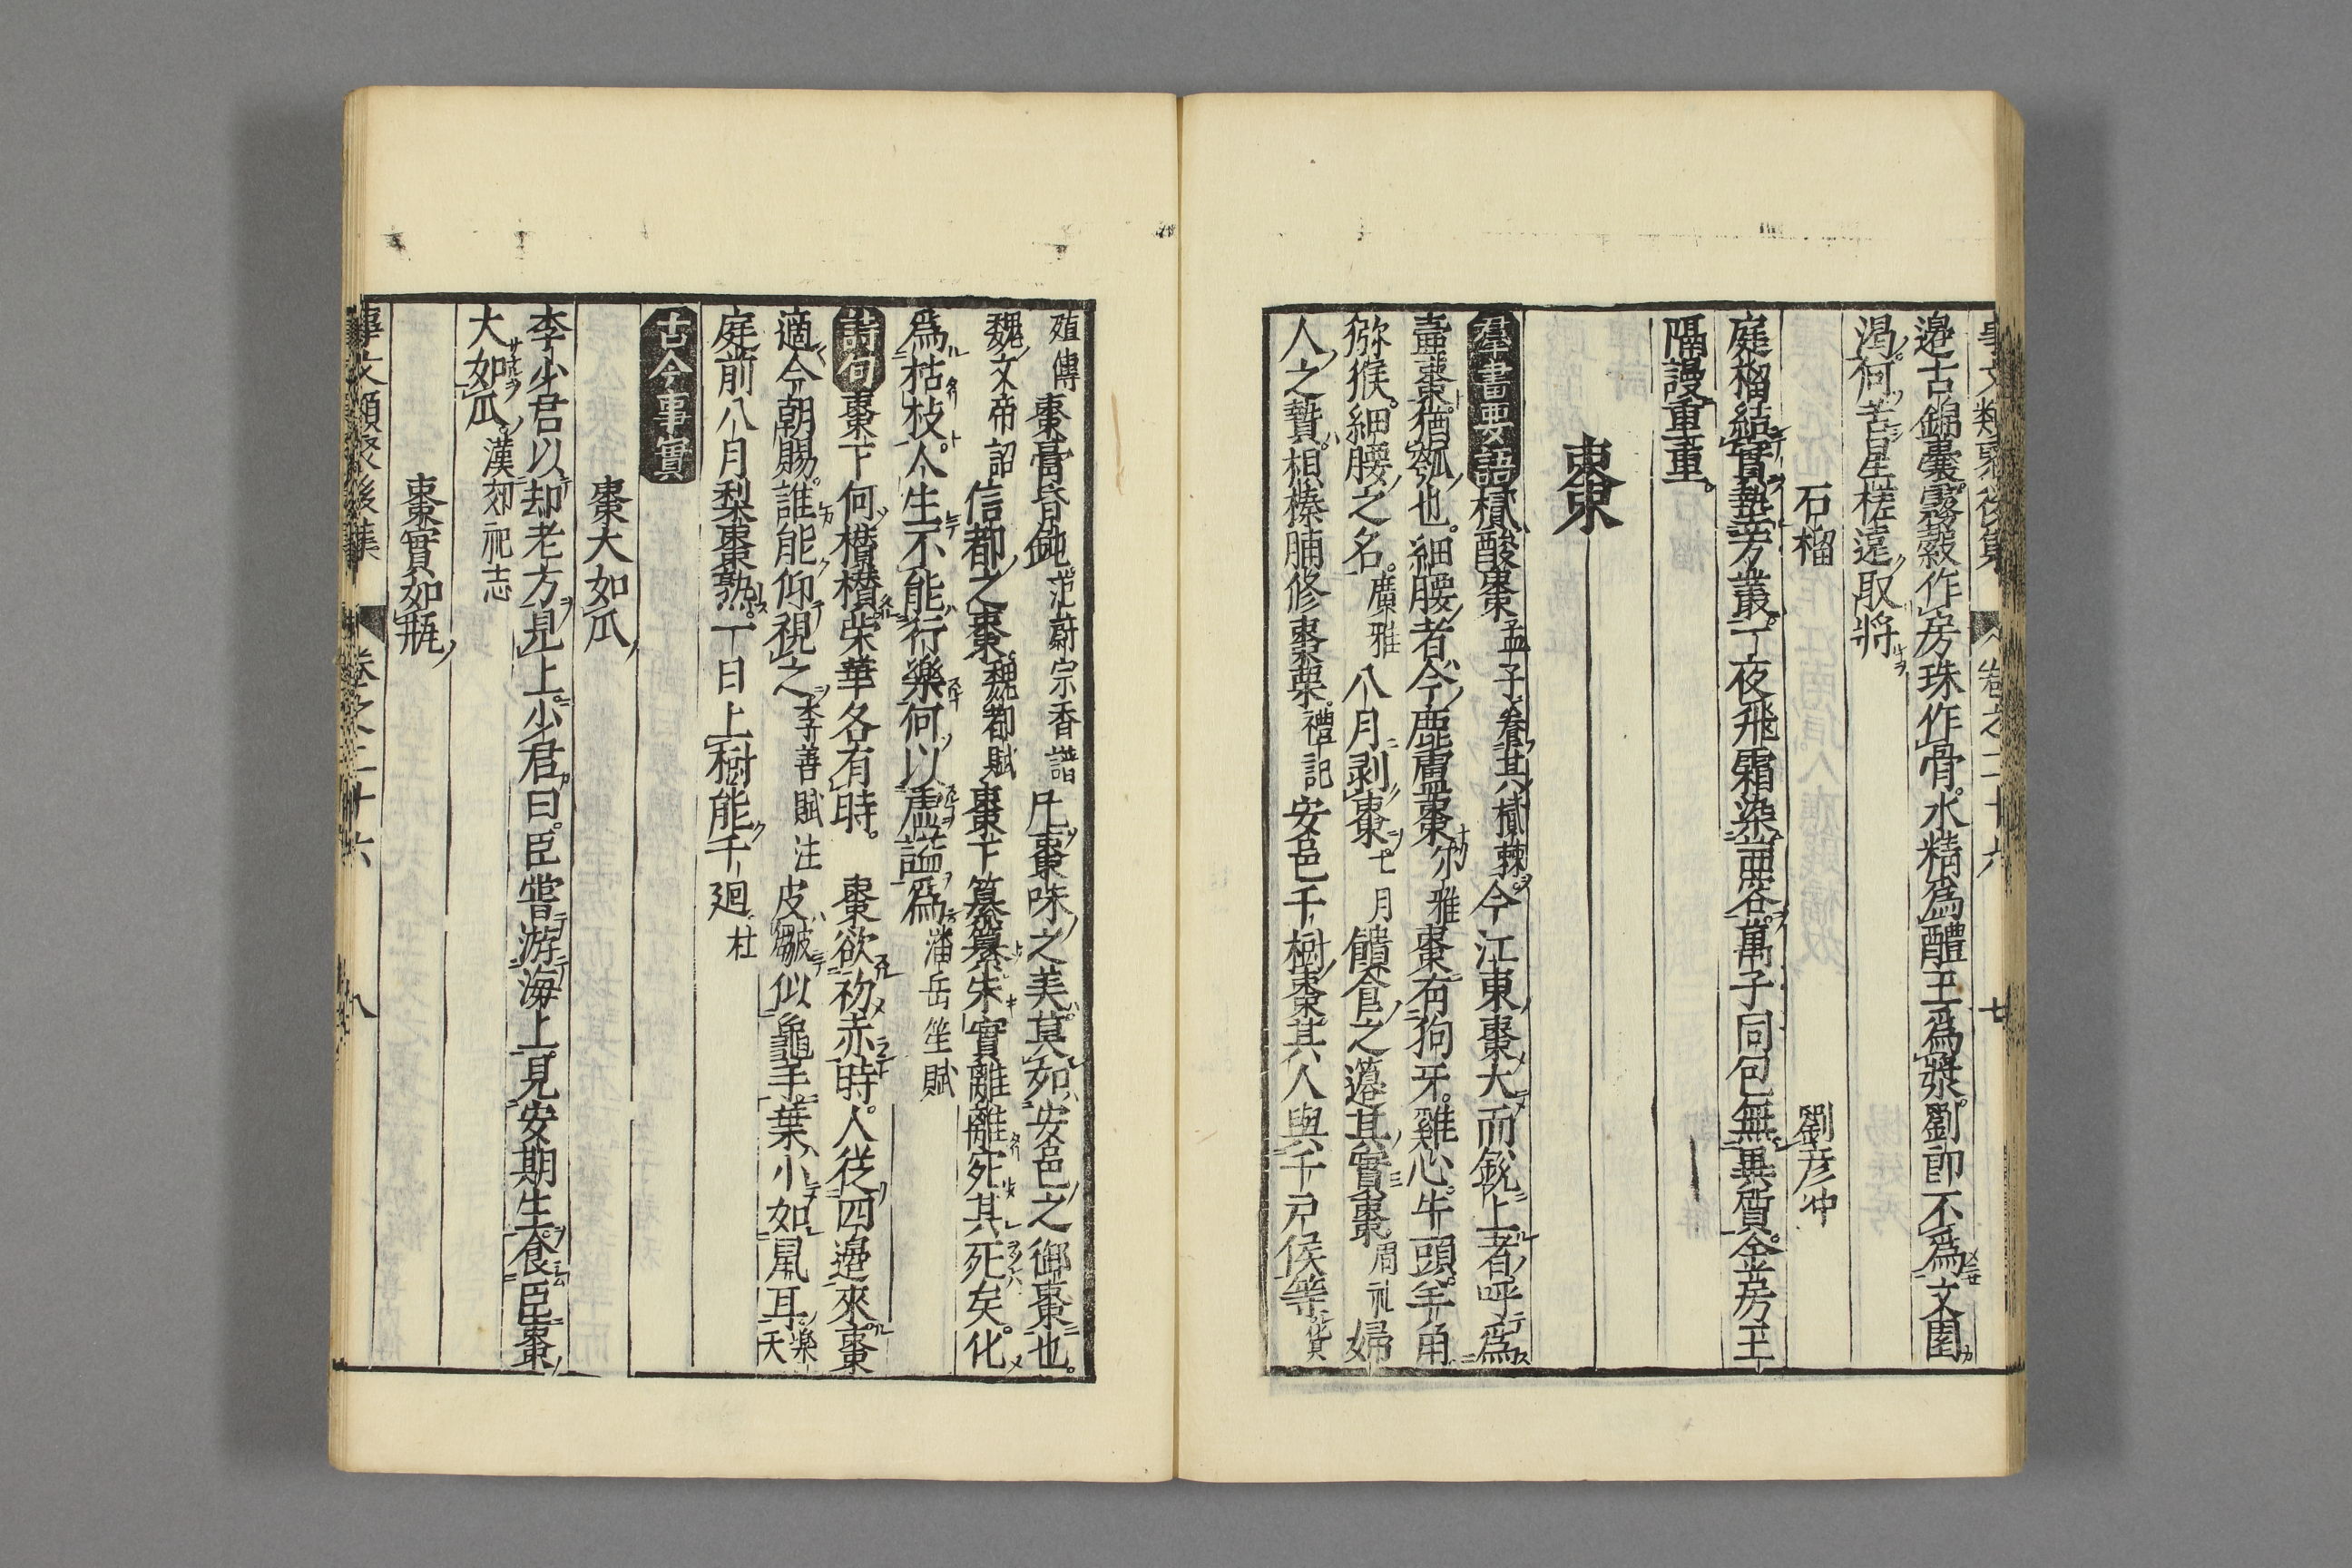 邉古錦囊霧縠作房珠作骨水精爲醴玉爲漿劉郎不爲文園
渴何苦星槎遠取將
石榴　劉彦冲
庭榴結實墊芳叢一夜飛霜染茜容萬子同包無異質金房玉
隔謾重重
棗
羣書要語樲酸棗孟子養其樲棘今江東棗大而銳上者呼爲
壷棗猶瓠也細腰者今鹿盧棗尔雅棗有狗牙雞心牛頭羊角
獮猴細腰之名廣雅八月剥棗七月饋食之籩其實棗周礼婦
人之贄椇榛脯修棗栗禮記安邑千樹棗其人與千戸侯等貨
殖傳棗膏昏鈍范蔚宗香譜凡棗味之美莫如安邑之御棗也
魏文帝詔信都之棗魏都賦棗下纂纂朱實離離宛其死矣化
爲枯枝人生不能行樂何以虚謚爲潘岳笙賦
詩句棗下何攅攅榮華各有時　棗欲初赤時人從四邉來棗
適今朝賜誰能仰視之李善賦注皮皺似龜手葉小如鼠耳樂天
庭前八月梨棗熟一日上樹能千廻杜
古今事實
棗大如瓜
李少君以却老方見上少君曰臣嘗游海上見安期生食臣棗
大如瓜漢郊祀志
棗實如瓶
事文類聚後集　卷之二十六　八